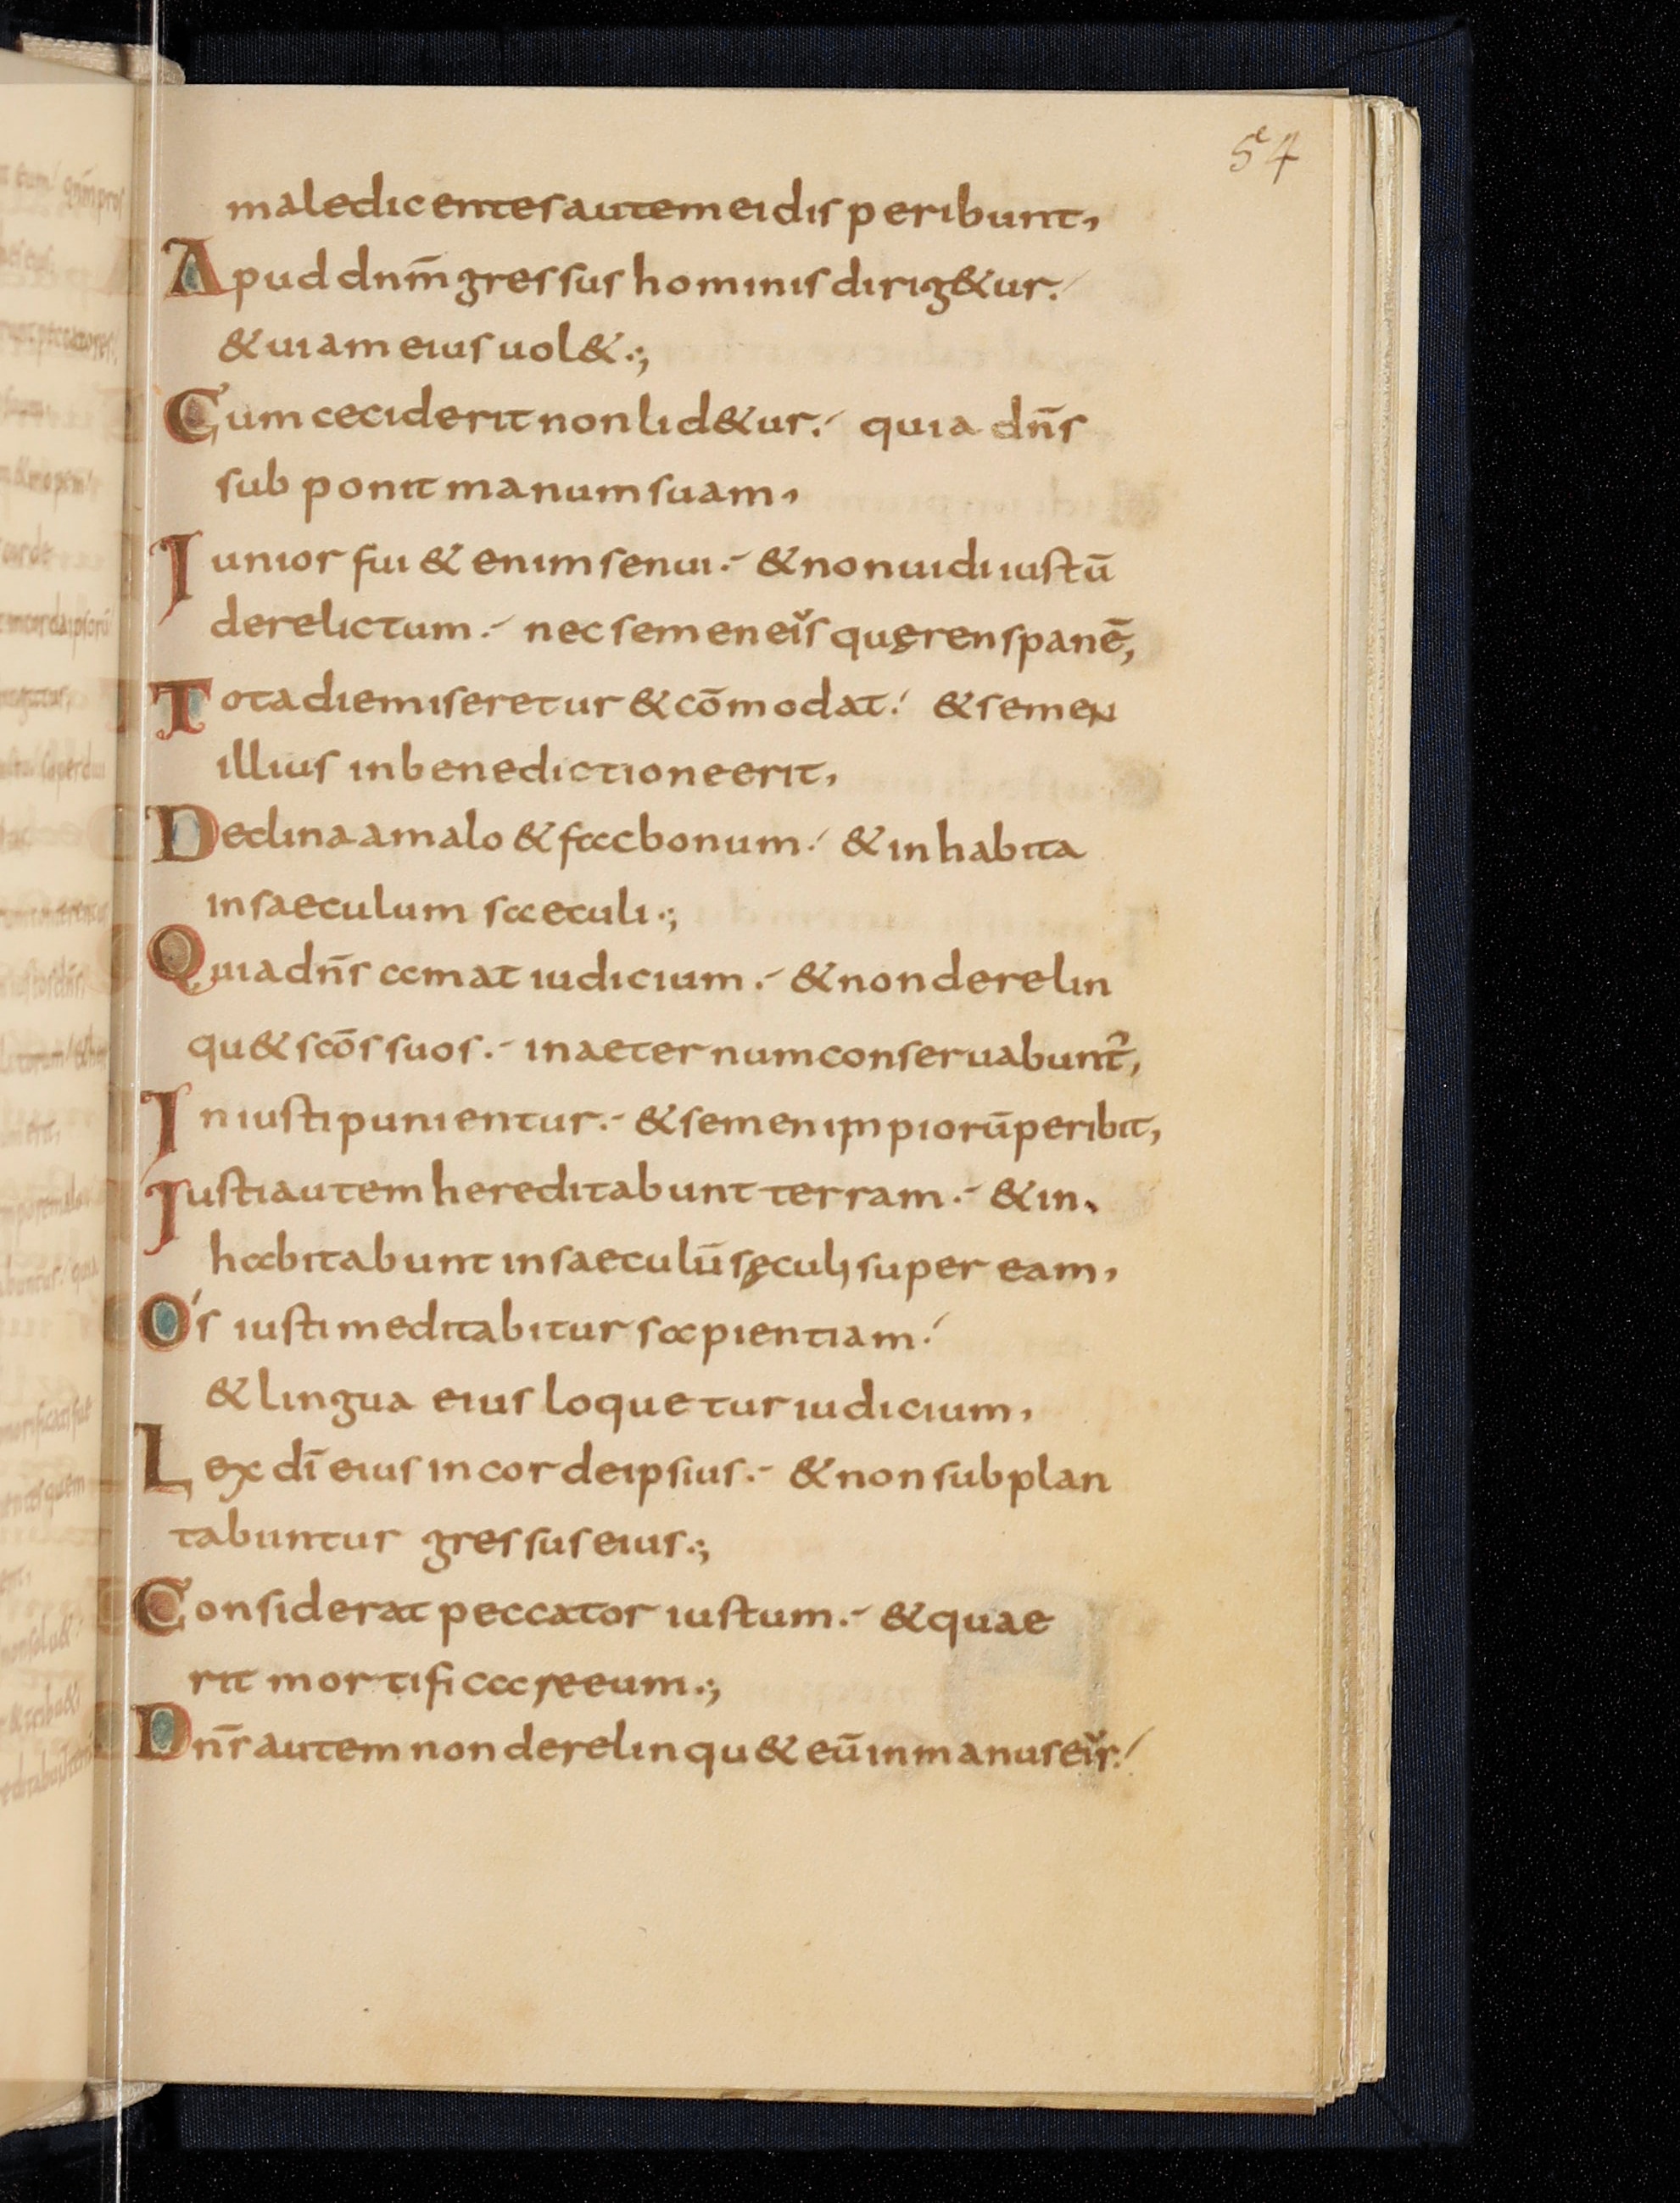 54
maledicentes autem ei disperibunt,
Apud dnm̄ gressus hominis dirig&ur.
& uiam eius uol&.;
Cum ceciderit non lid&ur. quia dn̄s
subponit manum suam,
Iunior fui & enim senui. & non uidi iustū
derelictum. nec semen eĭs quęrens panē,
Tota die miseretur & cōmodat. & semen
illius in benedictione erit,
Declina a malo & fac bonum. & inhabita
in saeculum saeculi.;
Quia dn̄s amat iudicium. & non derelin
qu& scōs suos. in aeternum conseruabunt᷑,
Iniusti punientur. & semen impiorū peribit,
Iusti autem hereditabunt terram. & in
habitabunt in saeculū sęculi super eam,
Ós iusti meditabitur sapientiam.
& lingua eius loquetur iudicium,
Lex dī eius in corde ipsius. & non subplan
tabuntur gressus eius.;
Considerat peccator iustum. & quae
rit mortificare eum.;
Dn̄s autem non derelinqu& eū in manus eĭs.